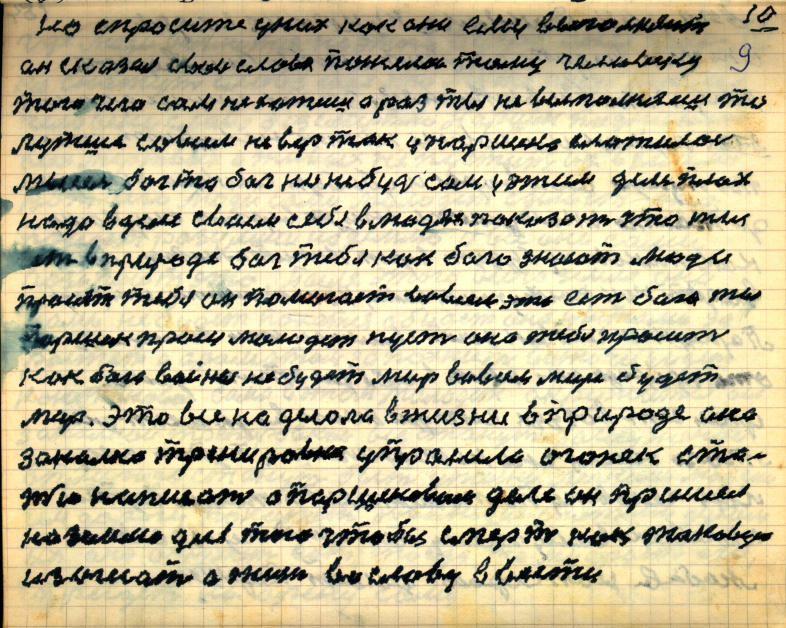 10
но спросите у них как они ему выполняют
9
он сказал свои слова пожелал тому человеку
того чего сам не хотиш а раз ты не выполняеш то
лутше совсем не вер так у паршека сложилос
бог то бог но и не буд сам у этим плох
надо в деле своем себя в людях показат что ты
ест в природе бог тебя как бога знают люди
просят тебя он помогает вовсем это ест бога ты
паршек проси молодеж пуст она тебя просит
как бога войны не будет мир вовсем мире будет
мир. Это все наделола в жизни в природе она
закалка тренировка упражила огонек ста-
тю написат о паршековом деле он пришел
на землю для того чтобы смерт как таковую
изгнат а жиз во славу ввести